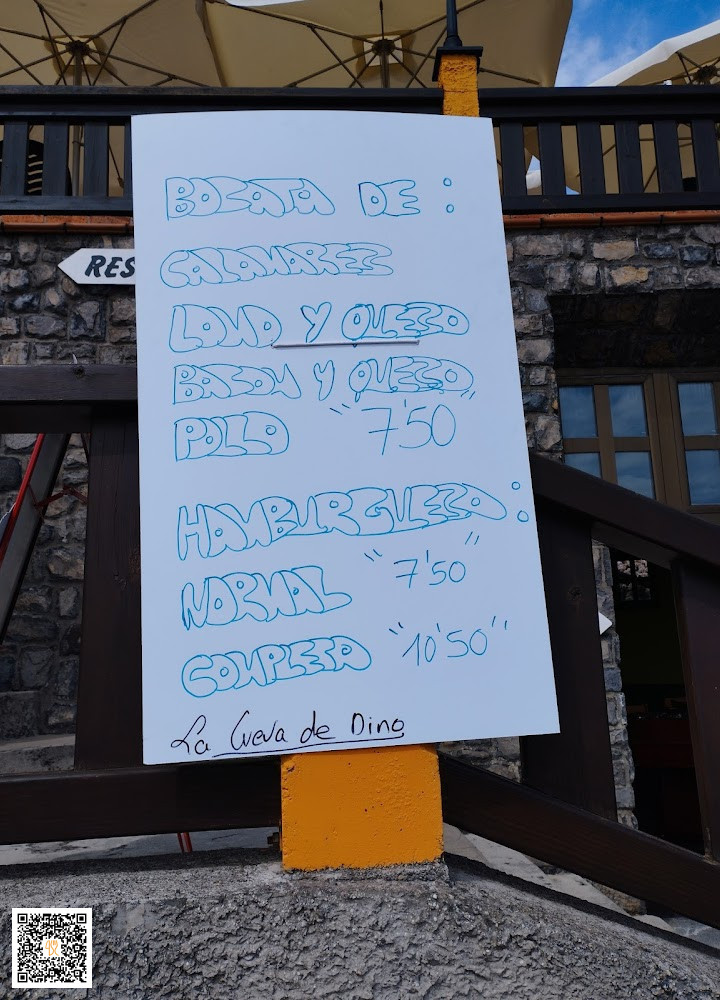 BOCATA DE :
CALAMARES
LOMO Y QUESO
BACON Y QUESO
POLLO "7'50"
HAMBURGUESA :
NORMAL "7'50"
COMPLETA "10'50"
La Cueva de Dino
RES